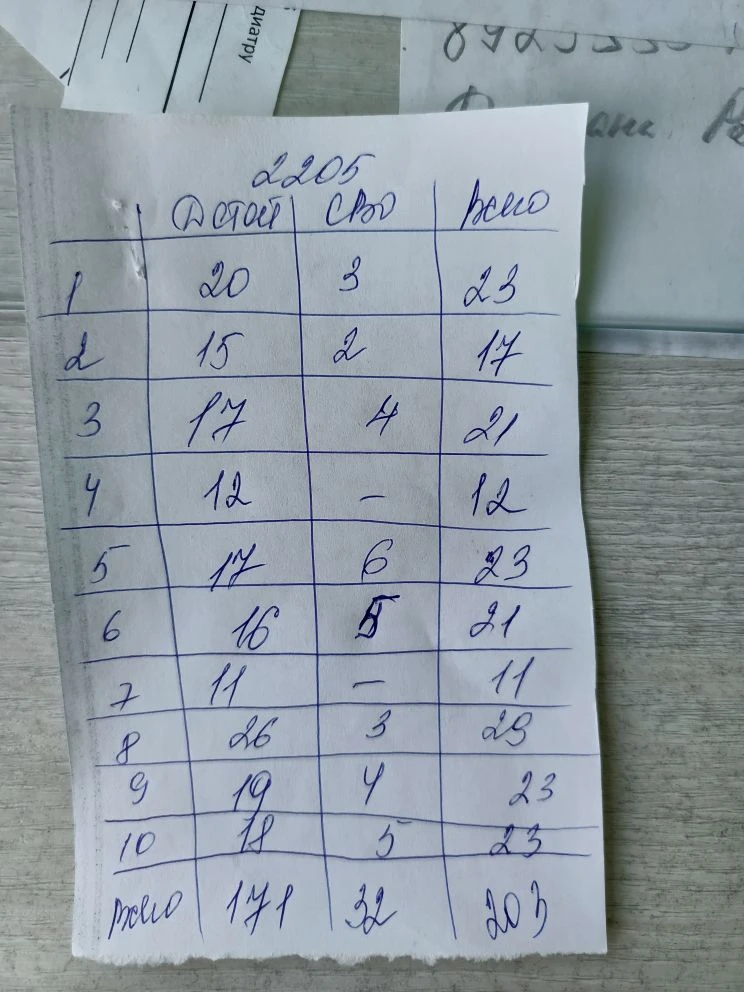 диатру
2205
Достой СВО Всего
1 20 3 23
2 15 2 17
3 17 4 21
4 12 - 12
5 17 6 23
6 16 5 21
7 11 - 11
8 26 3 29
9 19 4 23
10 18 5 23
Всего 171 32 203